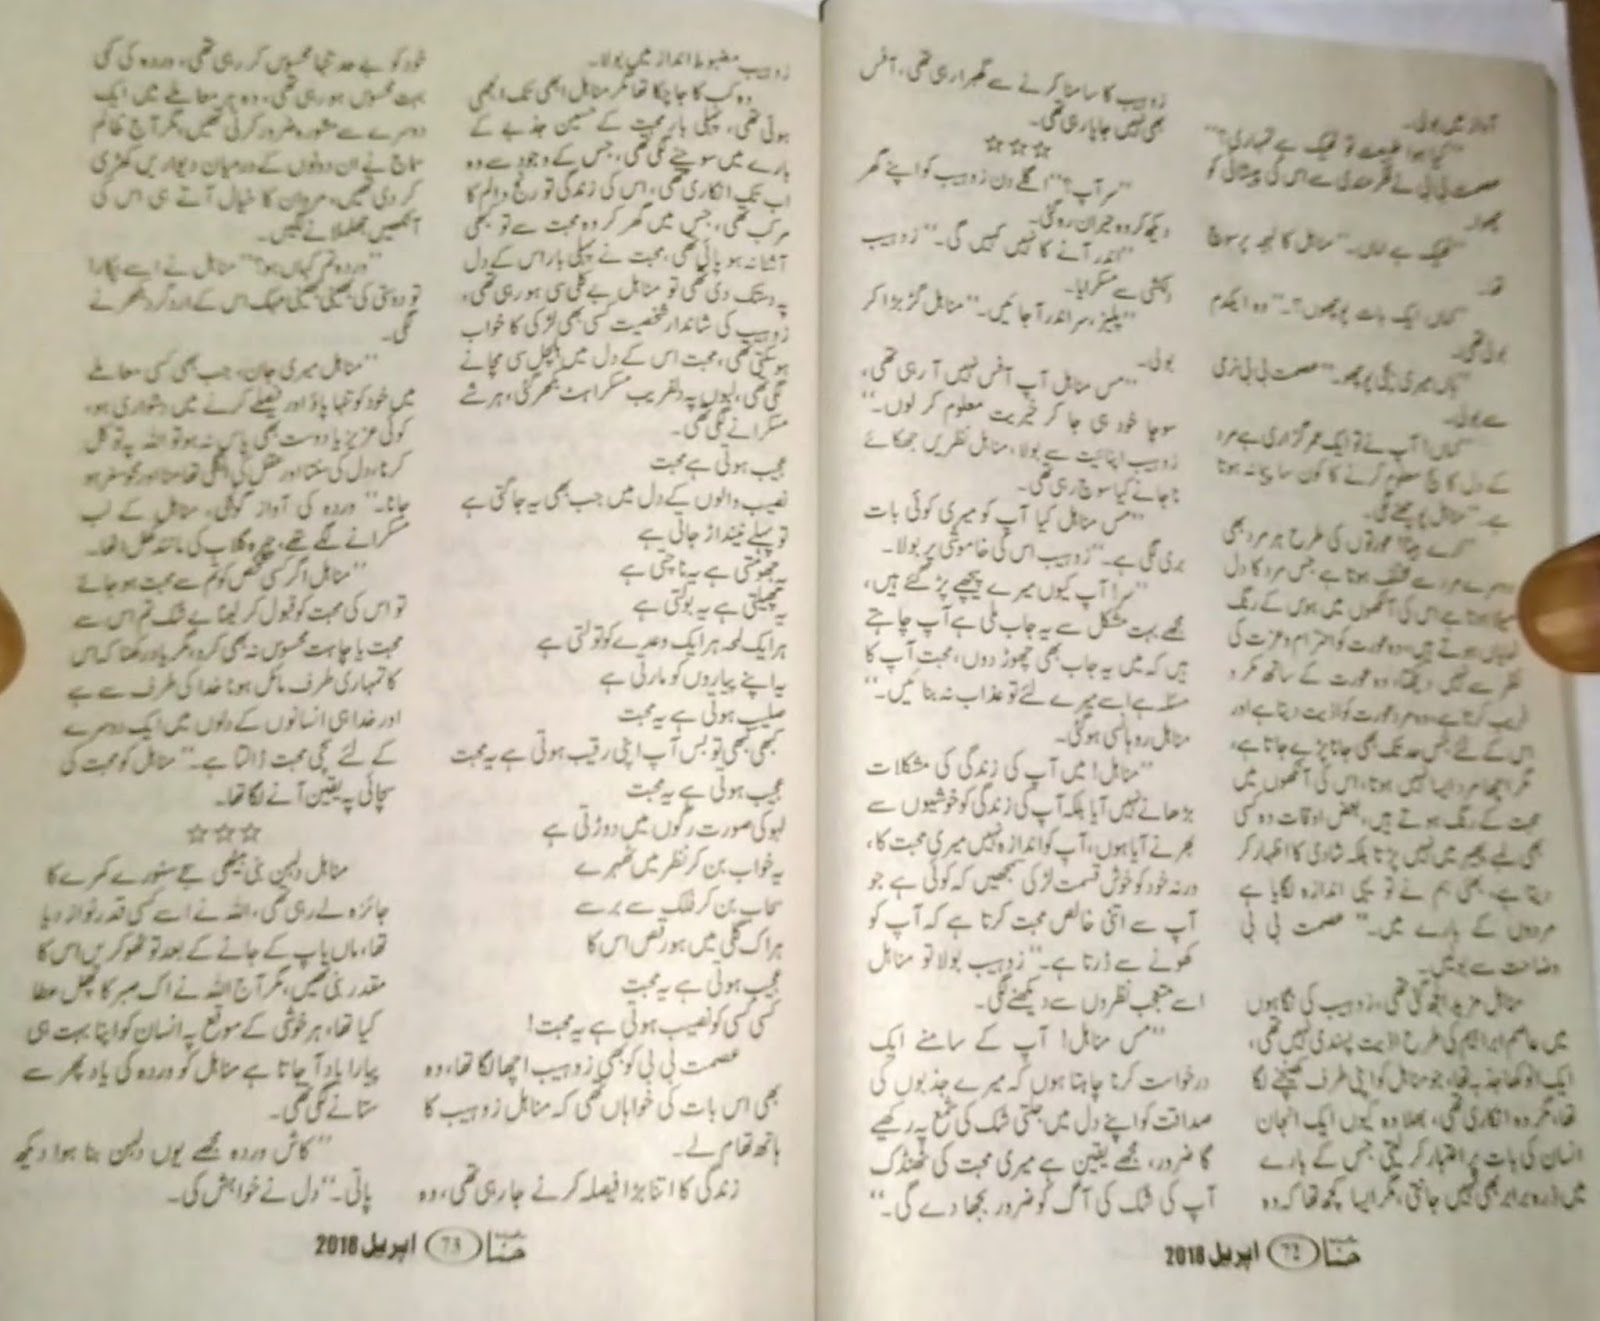 آواز میں بولی۔
"کیا ہوا طبیعت تو ٹھیک ہے تمہاری؟"
عصمت بی بی نے فکر مندی سے اس کی پیشانی کو
چھوا۔
"ٹھیک ہے اماں۔" مناہل کا لہجہ پر سوچ
تھا۔
"اماں ایک بات پوچھوں؟۔" وہ ایکدم
بولی تھی۔
"ہاں میری بچی پوچھو۔" عصمت بی بی نرمی
سے بولی۔
"اماں! آپ نے تو ایک عمر گزاری ہے مرد
کے دل کا سچ معلوم کرنے کا کون سا پیمانہ ہوتا
ہے۔" مناہل پوچھنے لگی۔
عورتوں کی طرح ہر مرد بھی
دوسرے مرد سے مختلف ہوتا ہے جس مرد کا دل
میلا ہوتا ہے اس کی آنکھوں میں ہوس کے رنگ
نمایاں ہوتے ہیں، وہ عورت کو احترام و عزت کی
نظر سے نہیں دیکھتا، وہ عورت کے ساتھ مکر و
فریب کرتا ہے، وہ مرد عورت کو اذیت دیتا ہے اور
اس کے لئے جس حد تک بھی جانا پڑے جاتا ہے،
مگر اچھا مرد ایسا نہیں ہوتا، اس کی آنکھوں میں
محبت کے رنگ ہوتے ہیں، بعض اوقات وہ کسی
بھی ہیر پھیر میں نہیں پڑتا بلکہ شادی کا اظہار کر
دیتا ہے، بھئی ہم نے تو یہی اندازہ لگایا ہے
مردوں کے بارے میں۔" عصمت بی بی
وضاحت سے بولیں۔
مناہل مزید الجھ گئی تھی، زوہیب کی نگاہوں
میں عاصم ابراہیم کی طرح اذیت پسندی نہیں تھی،
ایک انوکھا جذبہ تھا، جو مناہل کو اپنی طرف کھینچنے لگا
تھا، مگر وہ انکاری تھی، بھلا وہ کیوں ایک انجان
انسان کی بات پر اعتبار کر لیتی جس کے بارے
میں ذرہ برابر بھی نہیں جانتی، مگر ایسا کچھ تھا کہ وہ
زوہیب کا سامنا کرنے سے گھبرا رہی تھی، آفس
بھی نہیں جا پا رہی تھی۔
☆☆☆
"سر آپ؟" اگلے دن زوہیب کو اپنے گھر
دیکھ کر وہ حیران رہ گئی۔
"اندر آنے کا نہیں کہیں گی۔" زوہیب
دلکشی سے مسکرایا۔
"پلیز، سر اندر آ جائیں۔" مناہل گڑبڑا کر
بولی۔
"مس مناہل آپ آفس نہیں آ رہی تھی،
سوچا خود ہی جا کر خیریت معلوم کر لوں۔"
زوہیب اپنائیت سے بولا، مناہل نظریں جھکائے
نا جانے کیا سوچ رہی تھی۔
"مس مناہل کیا آپ کو میری کوئی بات
بری لگی ہے۔" زوہیب اس کی خاموشی پر بولا۔
"سر! آپ کیوں میرے پیچھے پڑ گئے ہیں،
مجھے بہت مشکل سے یہ جاب ملی ہے آپ چاہتے
ہیں کہ میں یہ جاب بھی چھوڑ دوں، محبت آپ کا
مسئلہ ہے اسے میرے لئے تو عذاب نہ بنائیں۔"
مناہل روہانسی ہو گئی۔
"مناہل! میں آپ کی زندگی کی مشکلات
بڑھانے نہیں آیا بلکہ آپ کی زندگی کو خوشیوں سے
بھرنے آیا ہوں، آپ کو اندازہ نہیں میری محبت کا،
ورنہ خود کو خوش قسمت لڑکی سمجھیں کہ کوئی ہے جو
آپ سے اتنی خالص محبت کرتا ہے کہ آپ کو
کھونے سے ڈرتا ہے۔" زوہیب بولا تو مناہل
اسے متعجب نظروں سے دیکھنے لگی۔
"مس مناہل! آپ کے سامنے ایک
درخواست کرنا چاہتا ہوں کہ میرے جذبوں کی
صداقت کو اپنے دل میں جلتی شک کی شمع پہ رکھیے
گا ضرور، مجھے یقین ہے میری محبت کی ٹھنڈک
آپ کی شک کی آگ کو ضرور بجھا دے گی۔"
حنا 72 اپریل 2018
زوہیب مضبوط انداز میں بولا۔
وہ کب کا جا چکا تھا مگر مناہل ابھی تک الجھی
ہوئی تھی، پہلی بار محبت کے حسین جذبے کے
بارے میں سوچنے لگی تھی، جس کے وجود سے وہ
اب تک انکاری تھی، اس کی زندگی تو رنج و الم کا
مرکب تھی، جس میں گھر کر وہ محبت سے تو بھی
آشنا نہ ہو پائی تھی، محبت نے پہلی بار اس کے دل
پہ دستک دی تھی تو مناہل بے کلی سی ہو رہی تھی،
زوہیب کی شاندار شخصیت کسی بھی لڑکی کا خواب
ہو سکتی تھی، محبت اس کے دل میں ہلچل سی مچانے
لگی تھی، لبوں پہ دلفریب مسکراہٹ بکھر گئی، ہر شے
مسکرانے لگی تھی۔
عجیب ہوتی ہے محبت
نصیب والوں کے دل میں جب بھی یہ جاگتی ہے
تو پہلے نیند اڑ جاتی ہے
یہ جھومتی ہے یہ ناچتی ہے
یہ پھیلتی ہے یہ بولتی ہے
ہر ایک لمحہ ہر ایک وعدے کو تولتی ہے
یہ اپنے پیاروں کو مارتی ہے
صلیب ہوتی ہے یہ محبت
کبھی کبھی تو بس آپ اپنی رقیب ہوتی ہے یہ محبت
عجیب ہوتی ہے یہ محبت
لہو کی صورت رگوں میں دوڑتی ہے
یہ خواب بن کر نظر میں ٹھہرے
سحاب بن کر فلک سے برسے
ہر اک گلی میں ہو رقص اس کا
عجیب ہوتی ہے یہ محبت
کسی کسی کو نصیب ہوتی ہے یہ محبت!
عصمت بی بی کو بھی زوہیب اچھا لگا تھا، وہ
بھی اس بات کی خواہاں تھی کہ مناہل زوہیب کا
ہاتھ تھام لے۔
زندگی کا اتنا بڑا فیصلہ کرنے جا رہی تھی، وہ
خود کو بے حد تنہا محسوس کر رہی تھی، وردہ کی کمی
بہت محسوس ہو رہی تھی، وہ ہر معاملے میں ایک
دوسرے سے مشورہ ضرور کرتی تھیں، مگر آج ظالم
سماج نے ان دونوں کے درمیان دیواریں کھڑی
کر دی تھیں، مروان کا خیال آتے ہی اس کی
آنکھیں جھلملانے لگیں۔
"وردہ تم کہاں ہو؟" مناہل نے اسے پکارا
تو دوستی کی بھینی بھینی مہک اس کے ارد گرد بکھرنے
لگی۔
"مناہل میری جان، جب بھی کسی معاملے
میں خود کو تنہا پاؤ اور فیصلے کرنے میں دشواری ہو،
کوئی عزیز یا دوست بھی پاس نہ ہو تو اللہ پہ توکل
کرنا، دل کی سننا اور عقل کی انگلی تھامنا اور محو سفر ہو
جانا۔" وردہ کی آواز گونجی، مناہل کے لب
مسکرانے لگے تھے، چہرہ گلاب کی مانند کھل اٹھا۔
"مناہل اگر کسی شخص کو تم سے محبت ہو جائے
تو اس کی محبت کو قبول کر لینا بے شک تم اس سے
محبت یا چاہت محسوس نہ بھی کرو، مگر یاد رکھنا کہ اس
کا تمہاری طرف مائل ہونا خدا کی طرف سے ہے
اور خدا ہی انسانوں کے دلوں میں ایک دوسرے
کے لئے سچی محبت ڈالتا ہے۔" مناہل کو محبت کی
سچائی پہ یقین آنے لگا تھا۔
☆☆☆
مناہل دلہن بنی بیٹھی سجے سنورے کمرے کا
جائزہ لے رہی تھی، اللہ نے اسے کس قدر نواز دیا
تھا، ماں باپ کے جانے کے بعد تو ٹھوکریں اس کا
مقدر بنی تھیں، مگر آج اللہ نے اک صبر کا پھل عطا
کیا تھا، ہر خوشی کے موقع پہ انسان کو اپنا بہت ہی
پیارا یاد آ جاتا ہے مناہل کو وردہ کی یاد پھر سے
ستانے لگی تھی۔
"کاش وردہ مجھے یوں دلہن بنا ہوا دیکھ
پاتی۔" دل نے خواہش کی۔
حنا 73 اپریل 2018